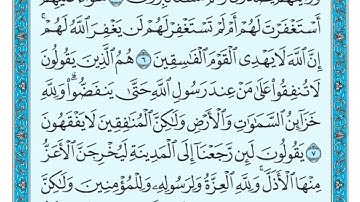 أَسْتَغْفَرْتَ لَهُمْ أَمْ لَمْ تَسْتَغْفِرْ لَهُمْ لَن يَغْفِرَ ٱللَّهُ لَهُمْ ۚ
إِنَّ ٱللَّهَ لَا يَهْدِى ٱلْقَوْمَ ٱلْفَٰسِقِينَ ٦ هُمُ ٱلَّذِينَ يَقُولُونَ
لَا تُنفِقُوا۟ عَلَىٰ مَنْ عِندَ رَسُولِ ٱللَّهِ حَتَّىٰ يَنفَضُّوا۟ ۗ وَلِلَّهِ
خَزَآئِنُ ٱلسَّمَٰوَٰتِ وَٱلْأَرْضِ وَلَٰكِنَّ ٱلْمُنَٰفِقِينَ لَا يَفْقَهُونَ
٧ يَقُولُونَ لَئِن رَّجَعْنَآ إِلَى ٱلْمَدِينَةِ لَيُخْرِجَنَّ ٱلْأَعَزُّ
مِنْهَا ٱلْأَذَلَّ ۚ وَلِلَّهِ ٱلْعِزَّةُ وَلِرَسُولِهِۦ وَلِلْمُؤْمِنِينَ وَلَٰكِنَّ